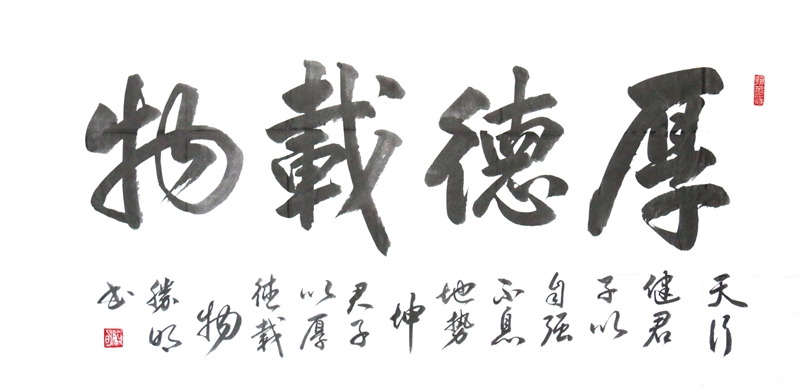 厚德載物
天行
健君
子以
自强
不息
地势
坤
君子
以厚
德载
物
勝明
书